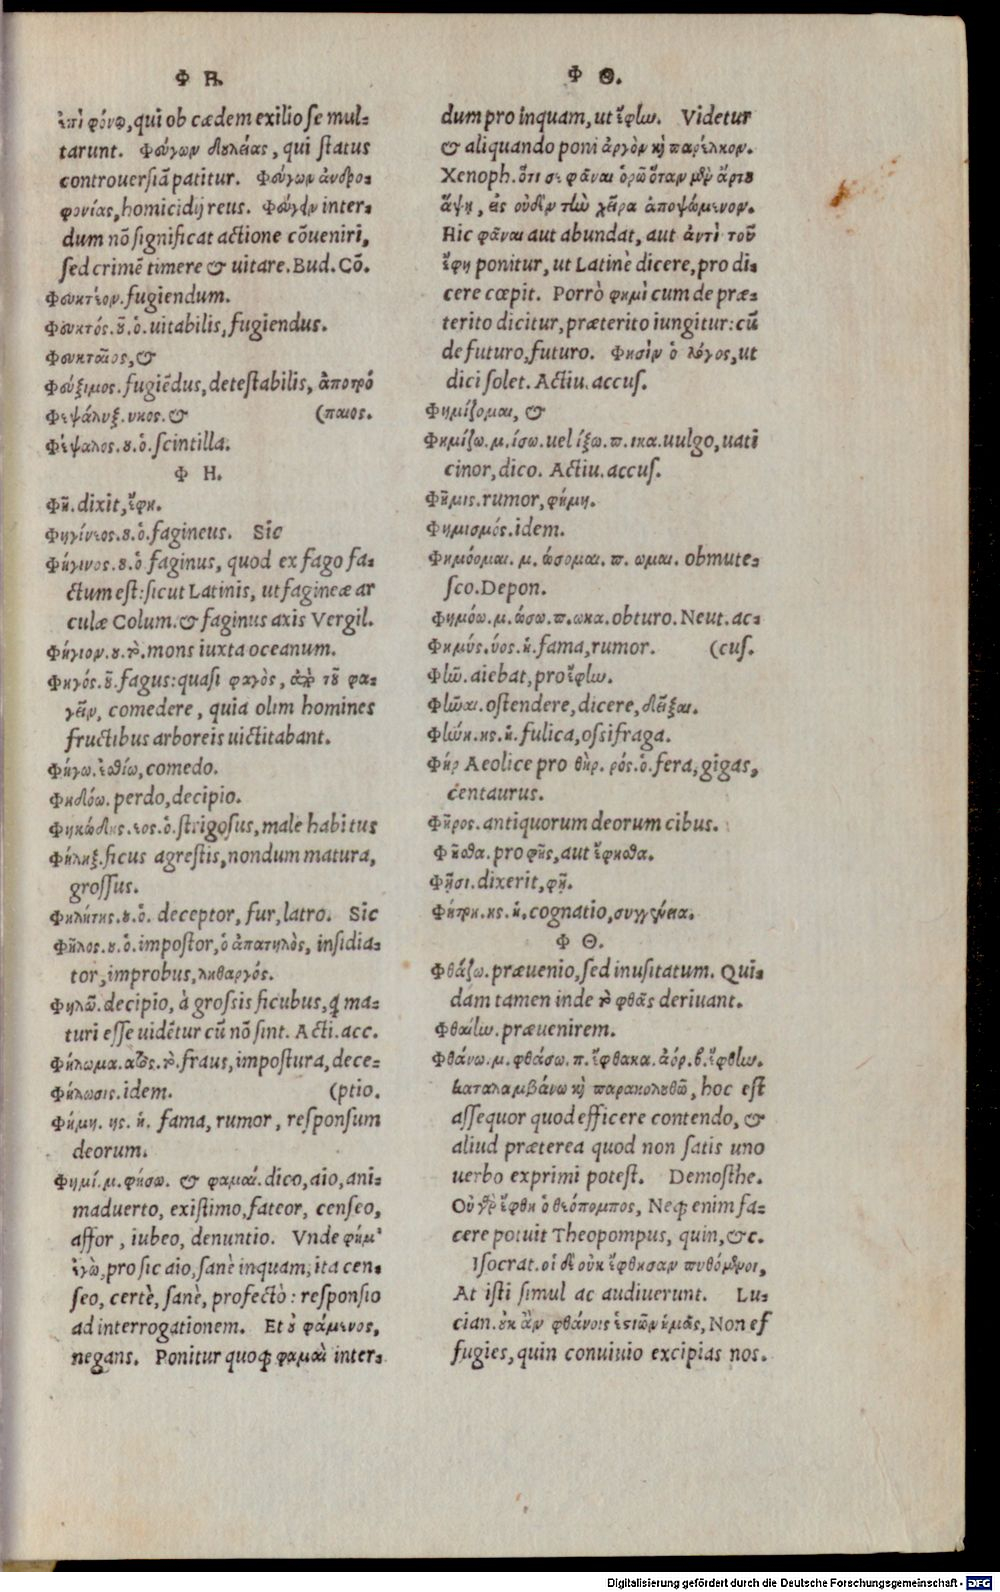 Φ Η.
ἐπὶ φόνῳ, qui ob cædem exilio se mul-
tarunt. Φεύγων δουλείας, qui status
controuersiā patitur. Φεύγων ἀνδρο-
φονίας, homicidij reus. Φεύγειν inter-
dum nō significat actione cōueniri,
sed crimē timere & uitare. Bud. Cō.
Φευκτέον. fugiendum.
Φευκτός. οῦ. ὁ. uitabilis, fugiendus.
Φευκταῖος, &
Φεύξιμος. fugiēdus, detestabilis, ἀποτρό
Φεψάλυξ. υκος. & (παιος.
Φέψαλος. ου. ὁ. scintilla.
Φ Η.
Φῆ. dixit, ἔφη.
Φηγίνεος. ου. ὁ. fagineus. Sic
Φήγινος. ου. ὁ faginus, quod ex fago fa-
ctum est: sicut Latinis, ut fagineæ ar
culæ Colum. & faginus axis Vergil.
Φήγιον. ου. τὸ. mons iuxta oceanum.
Φηγός. οῦ. fagus: quasi φαγὸς, ἀπὸ τοῦ φα-
γεῖν, comedere, quia olim homines
fructibus arboreis uictitabant.
Φήγω. ἐσθίω, comedo.
Φηδόω. perdo, decipio.
Φηκώδης. εος. ὁ. strigosus, male habitus
Φήληξ. ficus agrestis, nondum matura,
grossus.
Φηλήτης. ου. ὁ. deceptor, fur, latro. Sic
Φῆλος. ου. ὁ. impostor, ὁ ἀπατηλὸς, insidia-
tor, improbus, ληθαργός.
Φηλῶ. decipio, à grossis ficubus, ꝗ ma-
turi esse uidētur cū nō sint. Acti. acc.
Φήλωμα. ατος. τὸ. fraus, impostura, dece-
Φήλωσις. idem. (ptio.
Φήμη. ης. ἡ. fama, rumor, responsum
deorum.
Φημί. μ. φήσω. & φαμαί. dico, aio, ani-
maduerto, existimo, fateor, censeo,
affor, iubeo, denuntio. Vnde φήμ'
ἐγὼ, pro sic aio, sanè inquam, ita cen-
seo, certè, sanè, profectò: responsio
ad interrogationem. Et ὁ φάμενος,
negans. Ponitur quoq̃ φαμαὶ inter-
Φ Θ.
dum pro inquam, ut ἔφlω. Videtur
& aliquando poni ἀργὸν καὶ παρέλκον.
Xenoph. ὅτι σε φᾶναι ὁρῶ ὅταν μὲν ἄρτου
ἅψῃ, εἰς οὐδὲν τlω χεῖρα ἀποψώμενον.
Hic φᾶναι aut abundat, aut ἀντὶ τοῦ
ἔφη ponitur, ut Latinè dicere, pro di-
cere cœpit. Porrò φημὶ cum de præ-
terito dicitur, præterito iungitur: cū
de futuro, futuro. Φησὶν ὁ λόγος, ut
dici solet. Actiu. accus.
Φημίζομαι, &
Φημίζω. μ. ίσω. uel ίξω. π. ικα. uulgo, uati
cinor, dico. Actiu. accus.
Φῆμις. rumor, φήμη.
Φημισμός. idem.
Φημόομαι. μ. ώσομαι. π. ωμαι. obmute-
sco. Depon.
Φημόω. μ. ώσω. π. ωκα. obturo. Neut. ac-
Φημύς. ύος. ἡ. fama, rumor. (cus.
Φlῶ. aiebat, pro ἔφlω.
Φlῶαι. ostendere, dicere, δεῖξαι.
Φlώη. ης. ἡ. fulica, ossifraga.
Φήρ Aeolice pro θήρ. ρός. ὁ. fera, gigas,
centaurus.
Φῆρος. antiquorum deorum cibus.
Φῆσθα. pro φῆς, aut ἔφησθα.
Φῇσι. dixerit, φῇ.
Φήτρη. ης. ἡ. cognatio, συγγένεια.
Φ Θ.
Φθάζω. præuenio, sed inusitatum. Qui-
dam tamen inde τὸ φθὰς deriuant.
Φθαίlω. præuenirem.
Φθάνω. μ. φθάσω. π. ἔφθακα. ἀόρ. β. ἔφθlω.
καταλαμβάνω καὶ παρακολουθῶ, hoc est
assequor quod efficere contendo, &
aliud præterea quod non satis uno
uerbo exprimi potest. Demosthe.
Οὐ γὰρ ἔφθη ὁ θεόπομπος, Neq̃ enim fa-
cere potuit Theopompus, quin, &c.
Isocrat. οἱ δὲ οὐκ ἔφθησαν πυθόμενοι,
At isti simul ac audiuerunt. Lu-
cian. οὐκ ἂν φθάνοις ἑστιῶν ἡμᾶς, Non ef
fugies, quin conuiuio excipias nos.
Digitalisierung gefördert durch die Deutsche Forschungsgemeinschaft - DFG